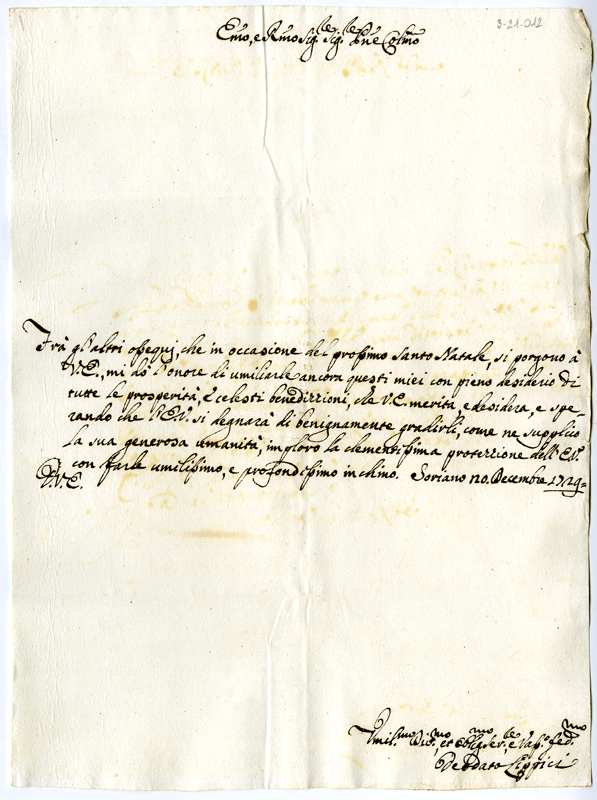 3-21-012
Emo, e Rmo Sig.re Sig.re Pne Colmo
Frà gl'altri ossequj, che in occasione del prossimo Santo Natale, si porgono à
V.E., mi dò l'onore di umiliarle ancora questi miei con pieno desiderio di
tutte le prosperità, e celesti benedizzioni, che V.E. merita, e desidera, e spe-
rando che l'E.V. si degnarà di benignamente gradirli, come ne supplico
la sua generosa umanità, imploro la clementissima protezzione dell'E.V.
con farle umilissimo, e profondissimo inchino. Soriano 20. Decembre 1729=
D.V.E.
Umil.mo Div.mo, et Obl.mo Ser.re, e Vass.o fed.mo
Deodato